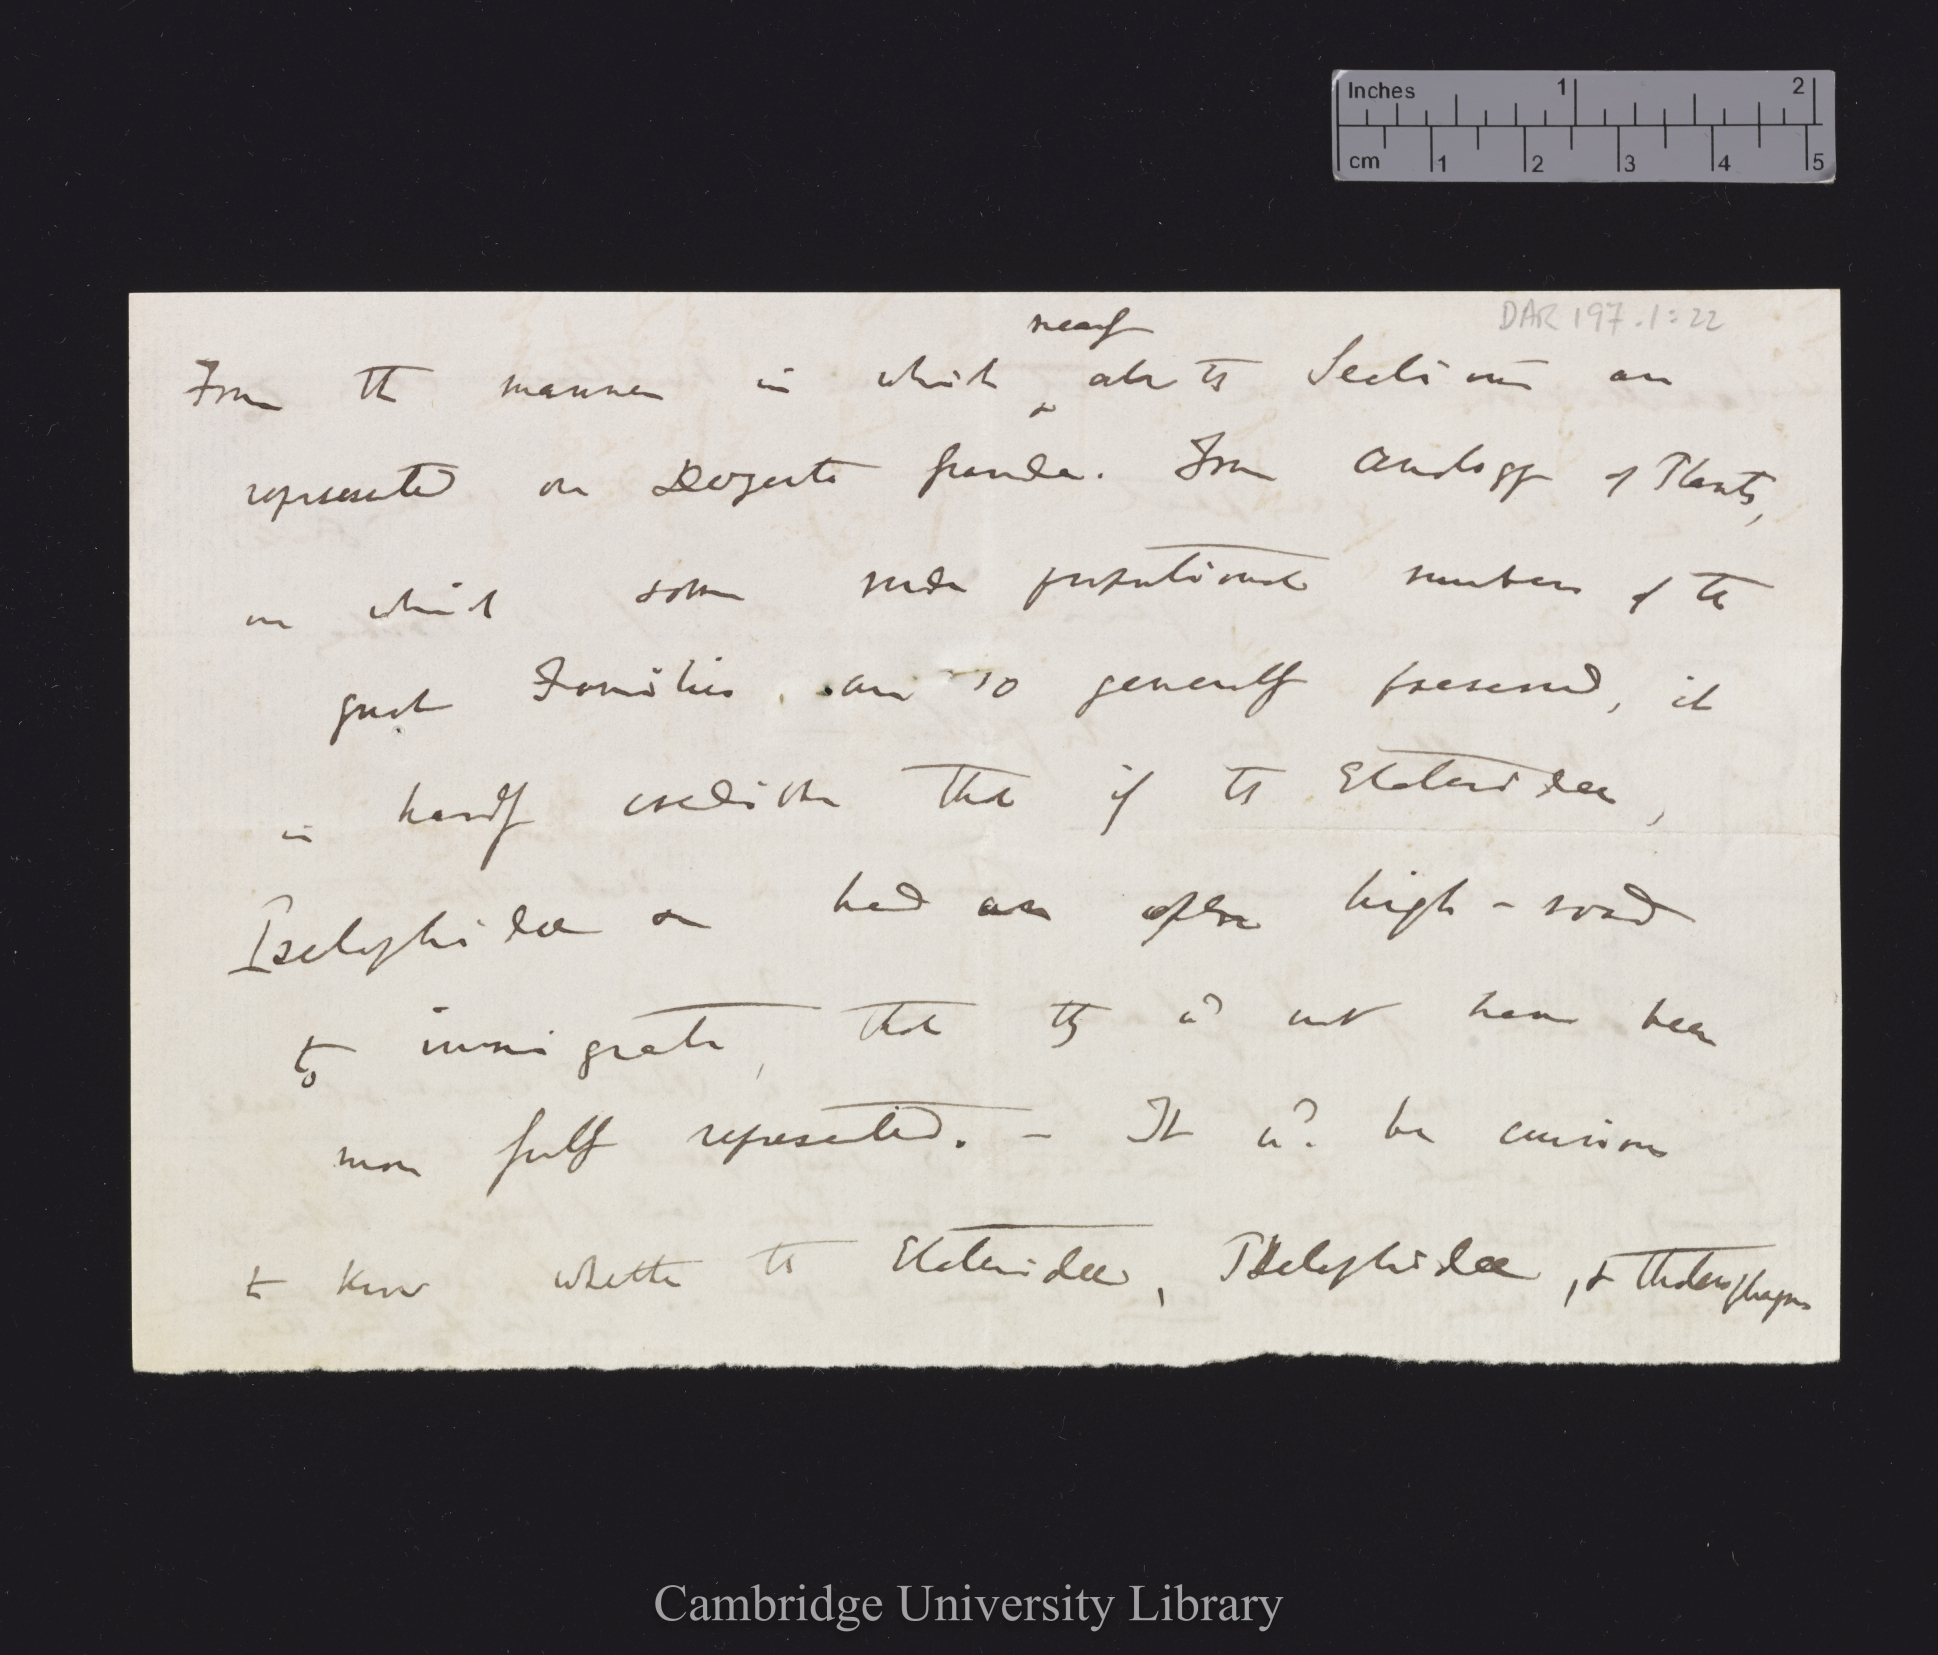 Inches 1 2
cm 1 2 3 4 5
DAR 197.1:22
nearly
From the manner in which ^ all the Sections are
represented on Dezerta grande. From analogy of Plants,
in which some rude proportional numbers of the
great Families are so generally preserved, it
is hardly credible that if the Elateridæ,
Pselaphidæ &c had an open high-road
to immigrate, that they wd not have been
more fully represented. — It wd. be curious
to know whether the Elateridæ, Pselaphidæ, &
Cambridge University Library